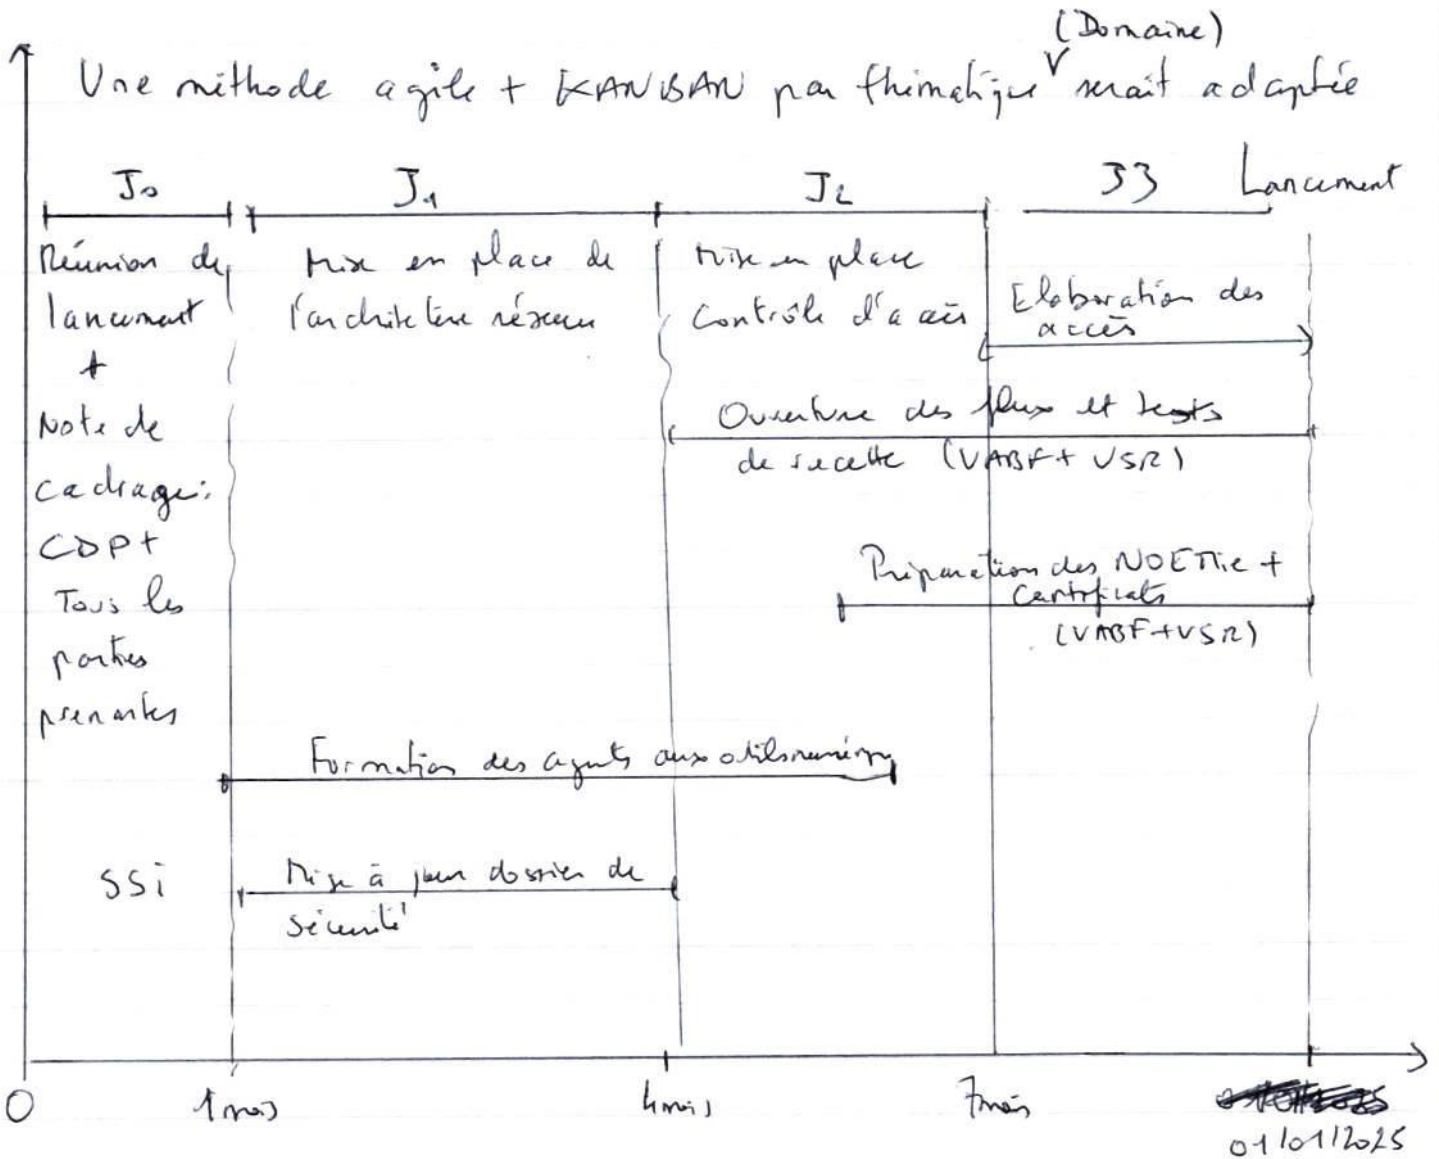 (Domaine)
Une méthode agile + KANBAN par thématique V serait adaptée
J0
J1
J2
J3
Lancement
Réunion de
lancement
+
Note de
cadrage:
CDP+
Tous les
parties
prenantes
Mise en place de
l'architecture réseau
Mise en place
Contrôle d'accès
Elaboration des
accès
Ouverture des flux et tests
de recette (VABF + VSR)
Préparation des NOEMIE +
Certificats
(VABF+VSR)
Formation des agents aux outils
SSI
Mise à jour dossier de
sécurité
0
1 mois
4 mois
7 mois
01/01/2025